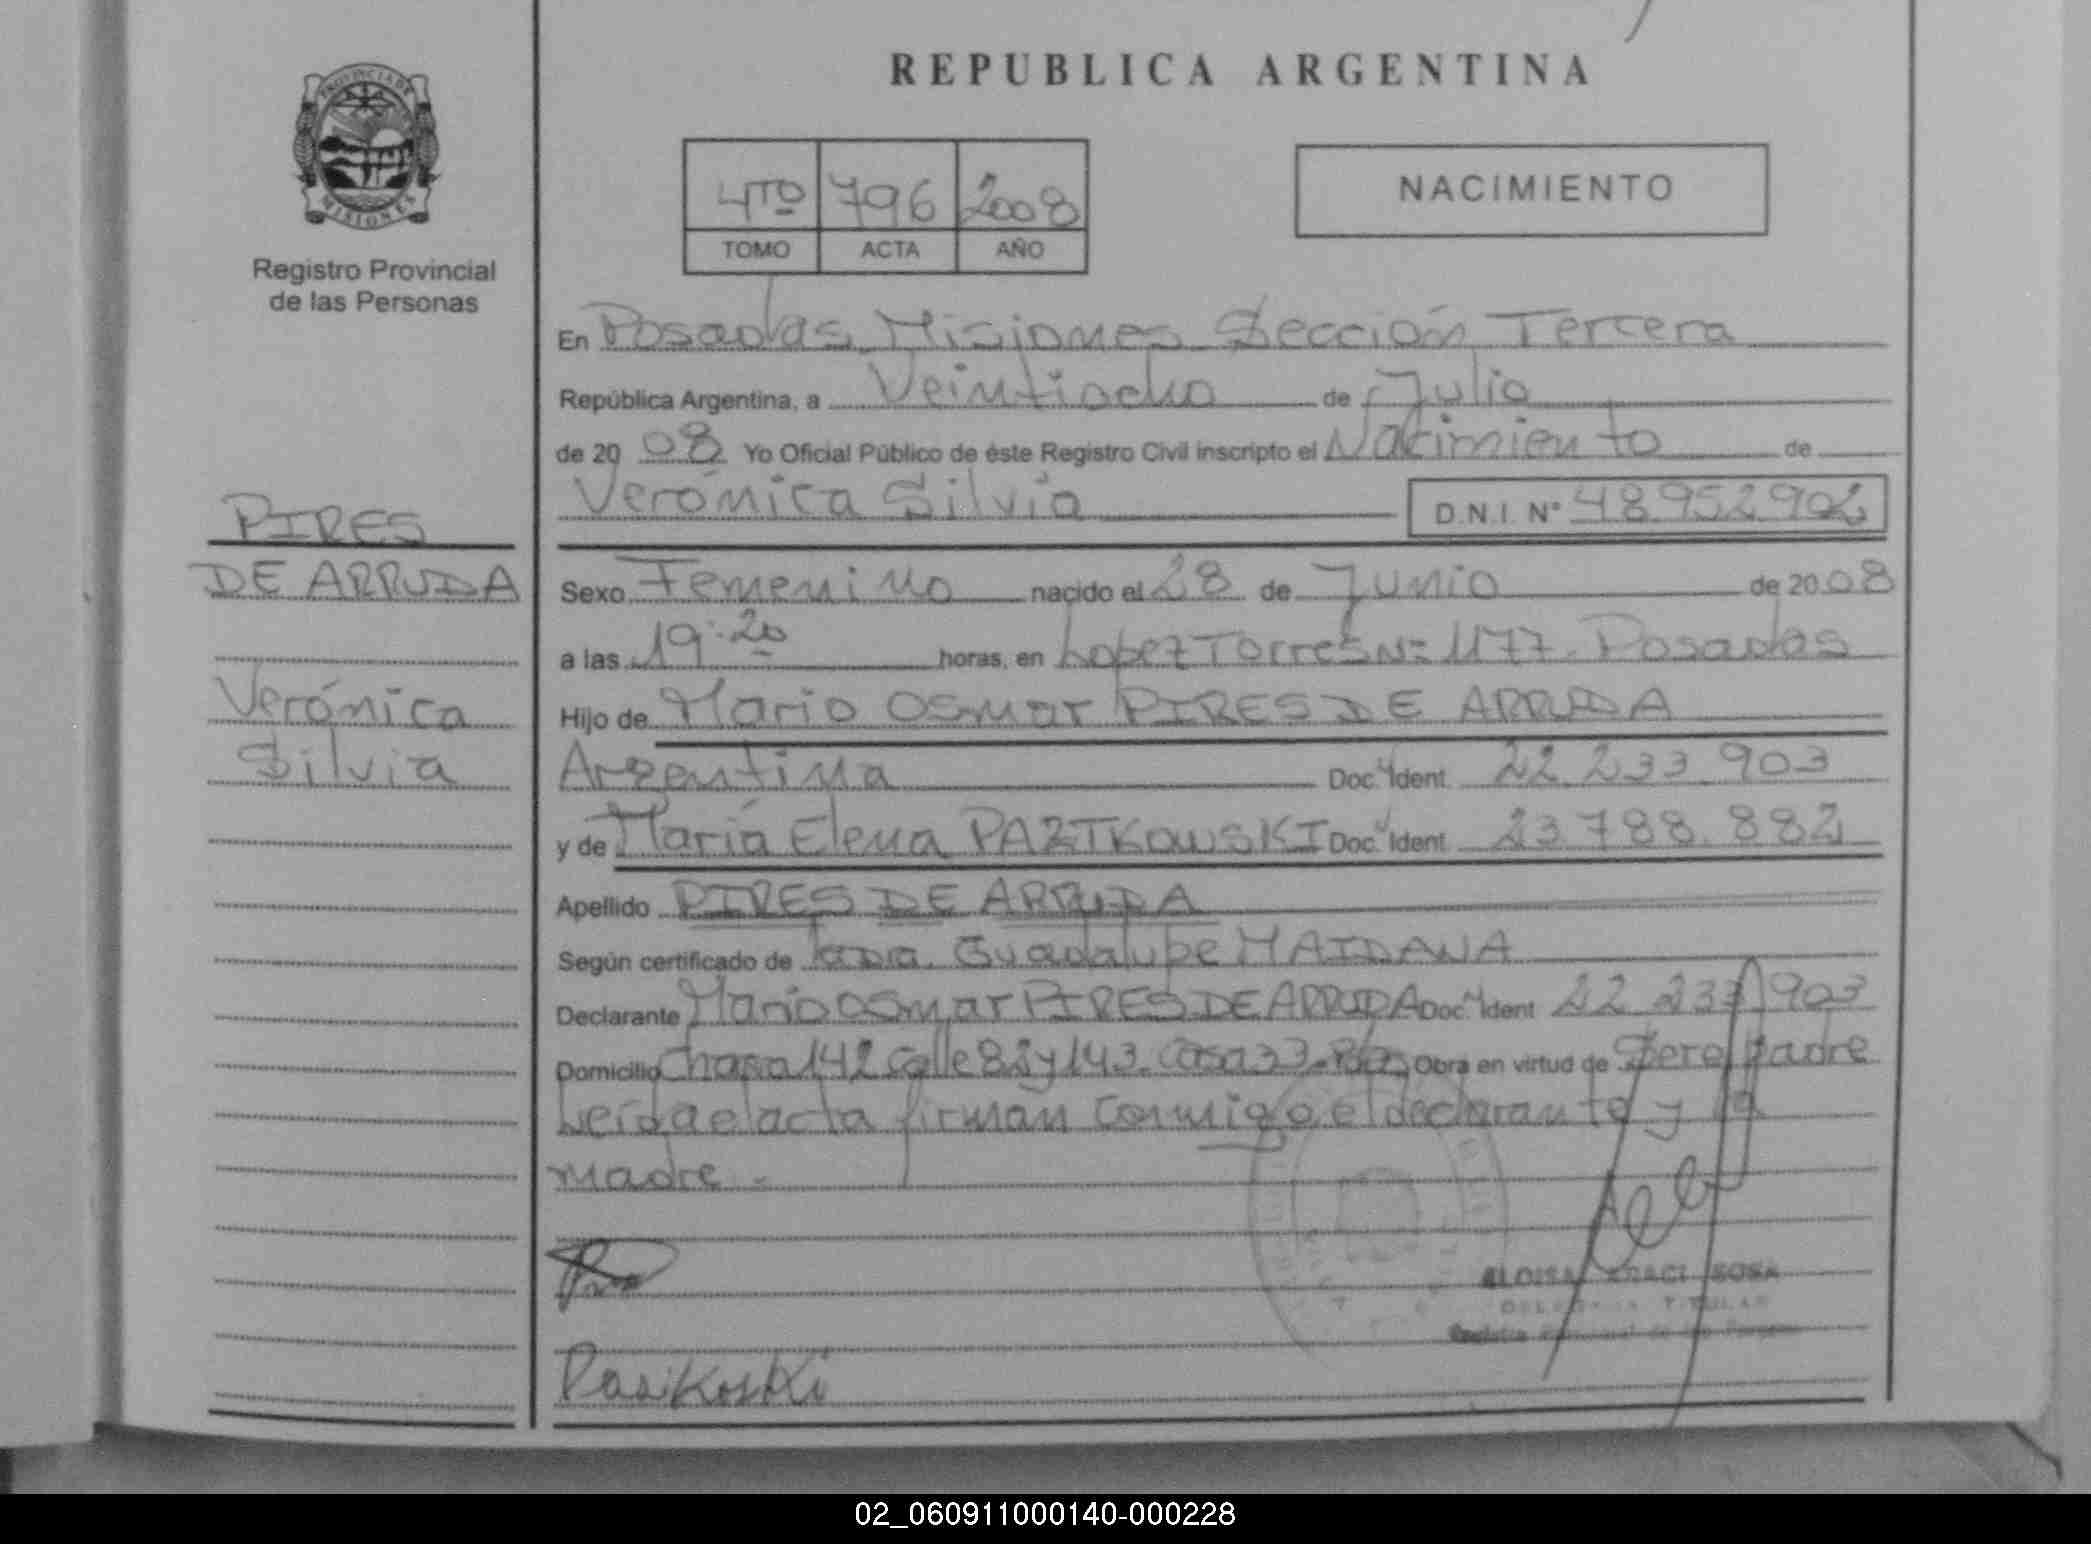 REPUBLICA ARGENTINA
PROVINCIA DE
MISIONES
Registro Provincial
de las Personas
4TO 796 2008
TOMO ACTA AÑO
NACIMIENTO
En Posadas Misiones Sección Tercera
República Argentina, a Veintiocho de Julio
de 20 08 Yo Oficial Público de éste Registro Civil inscripto el Nacimiento de
Verónica Silvia D.N.I. N° 48952902
PIRES
DE ARRUDA
Verónica
Silvia
Sexo Femenino nacido el 28 de Junio de 20 08
a las 19:20 horas, en Lopez Torres N= 1177. Posadas
Hijo de Mario Osmar PIRES DE ARRUDA
Argentina Doc. Ident. 22.233.903
y de María Elena Doc. Ident. 23.788.882
Apellido PIRES DE ARRUDA
Según certificado de Guadalupe MAIDANA
Declarante Mario Osmar PIRES DE ARRUDA Doc. Ident 22.233.903
Domicilio Chacra 142 Calle 82 y 143. Casa 33. Obra en virtud de Ser el padre
Leída el acta firman conmigo el declarante y la
madre.-
SOSA
TITULAR
02_060911000140-000228